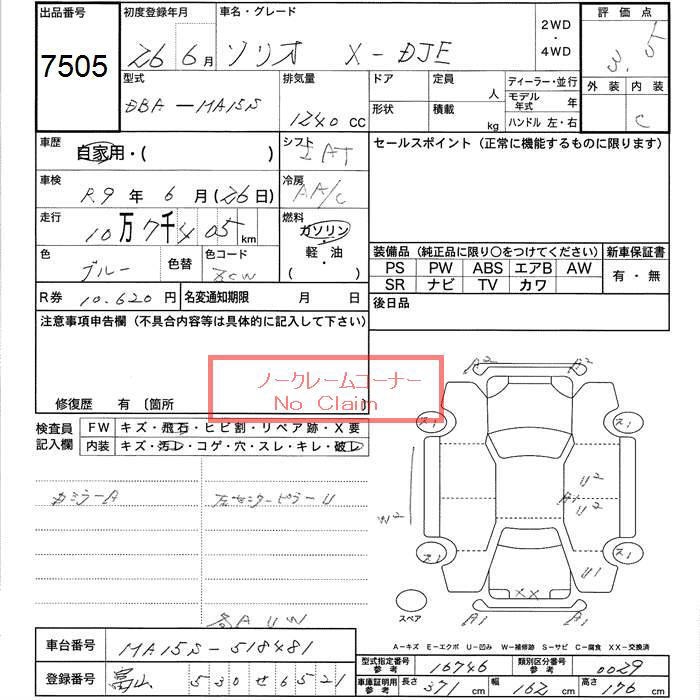 出品番号 初度登録年月 車名・グレード 2WD ・ 4WD 評価点
7505 26 6月 ソリオ X-DJE 3.5
型式 排気量 ドア 定員 人 ディーラー・並行 外装 内装
DBA-MA15S 1240 CC 形状 積載 kg モデル年式 年 C
ハンドル 左・右
車歴 自家用・( ) シフト IAT セールスポイント(正常に機能するものに限ります)
車検 R9年 6月(26日) 冷房 AA/C
走行 10万7千405 km 燃料 ガソリン・軽油( )
色 ブルー 色替 色コード ZCW
装備品(純正品に限り○をつけてください) 新車保証書
PS PW ABS エアB AW 有・無
SR ナビ TV カワ
R券 10.620円 名変通知期限 月 日 後日品
注意事項申告欄(不具合内容等は具体的に記入して下さい)
ノークレームコーナー
No Claim
修復歴 有 〔箇所 〕
検査員記入欄 FW キズ・飛石・ヒビ割・リペア跡・X要
内装 キズ・汚レ・コゲ・穴・スレ・キレ・破レ
カミラーA 左センターピラーU
各A U W
A2 A2
ス1 ス1
W2 U2
A1 U2
ス1 U1 ス1
XX
スペア A1 A1
A-キズ E-エクボ U-凹み W-補修跡 S-サビ C-腐食 XX-交換済
車台番号 MA15S-518481 型式指定番号 参考 16746 類別区分番号 参考 0029
登録番号 富山 530 せ 6521 車庫証明用 参考 長さ 371 cm 幅 162 cm 高さ 176 cm